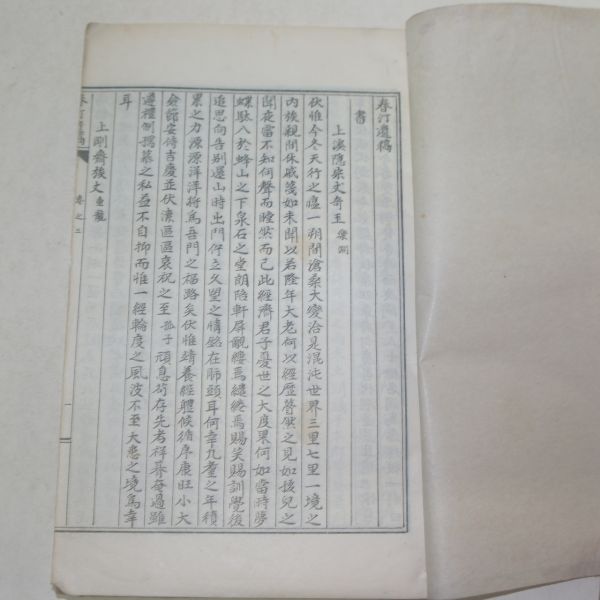 春汀遺稿
書
上溪隠宗丈奇玉 梁淵
伏惟今冬天行之瘟一朔間滄桑大變洽是混沌世界三里七里一境之
內族親間休戚漠如未聞以若隆年大老何以經歷瞢然之見如孩兒之
聞夜雷不知何聲而瞠然而已此經濟君子憂世之大度果何如當時夢
蝶馱八於蜂山之下泉石之堂朗陪軒屏覼縷焉繾綣焉賜笑賜訓覺後
追思向告別還山時出門佇立久望之情路在肺頭耳何幸九耋之年積
累之力源源洋洋將爲吾門之福路矣伏惟靖養經體候循序康旺小大
僉節安侍吉慶並伏溸區區哀祝之至孤子頑息苟存先考祥朞奄過雖
遵禮例攦慕之私益不自抑而惟一經輪度之風波不至大悪之境爲幸
耳
上剛齋族丈重龍
卷之二
一